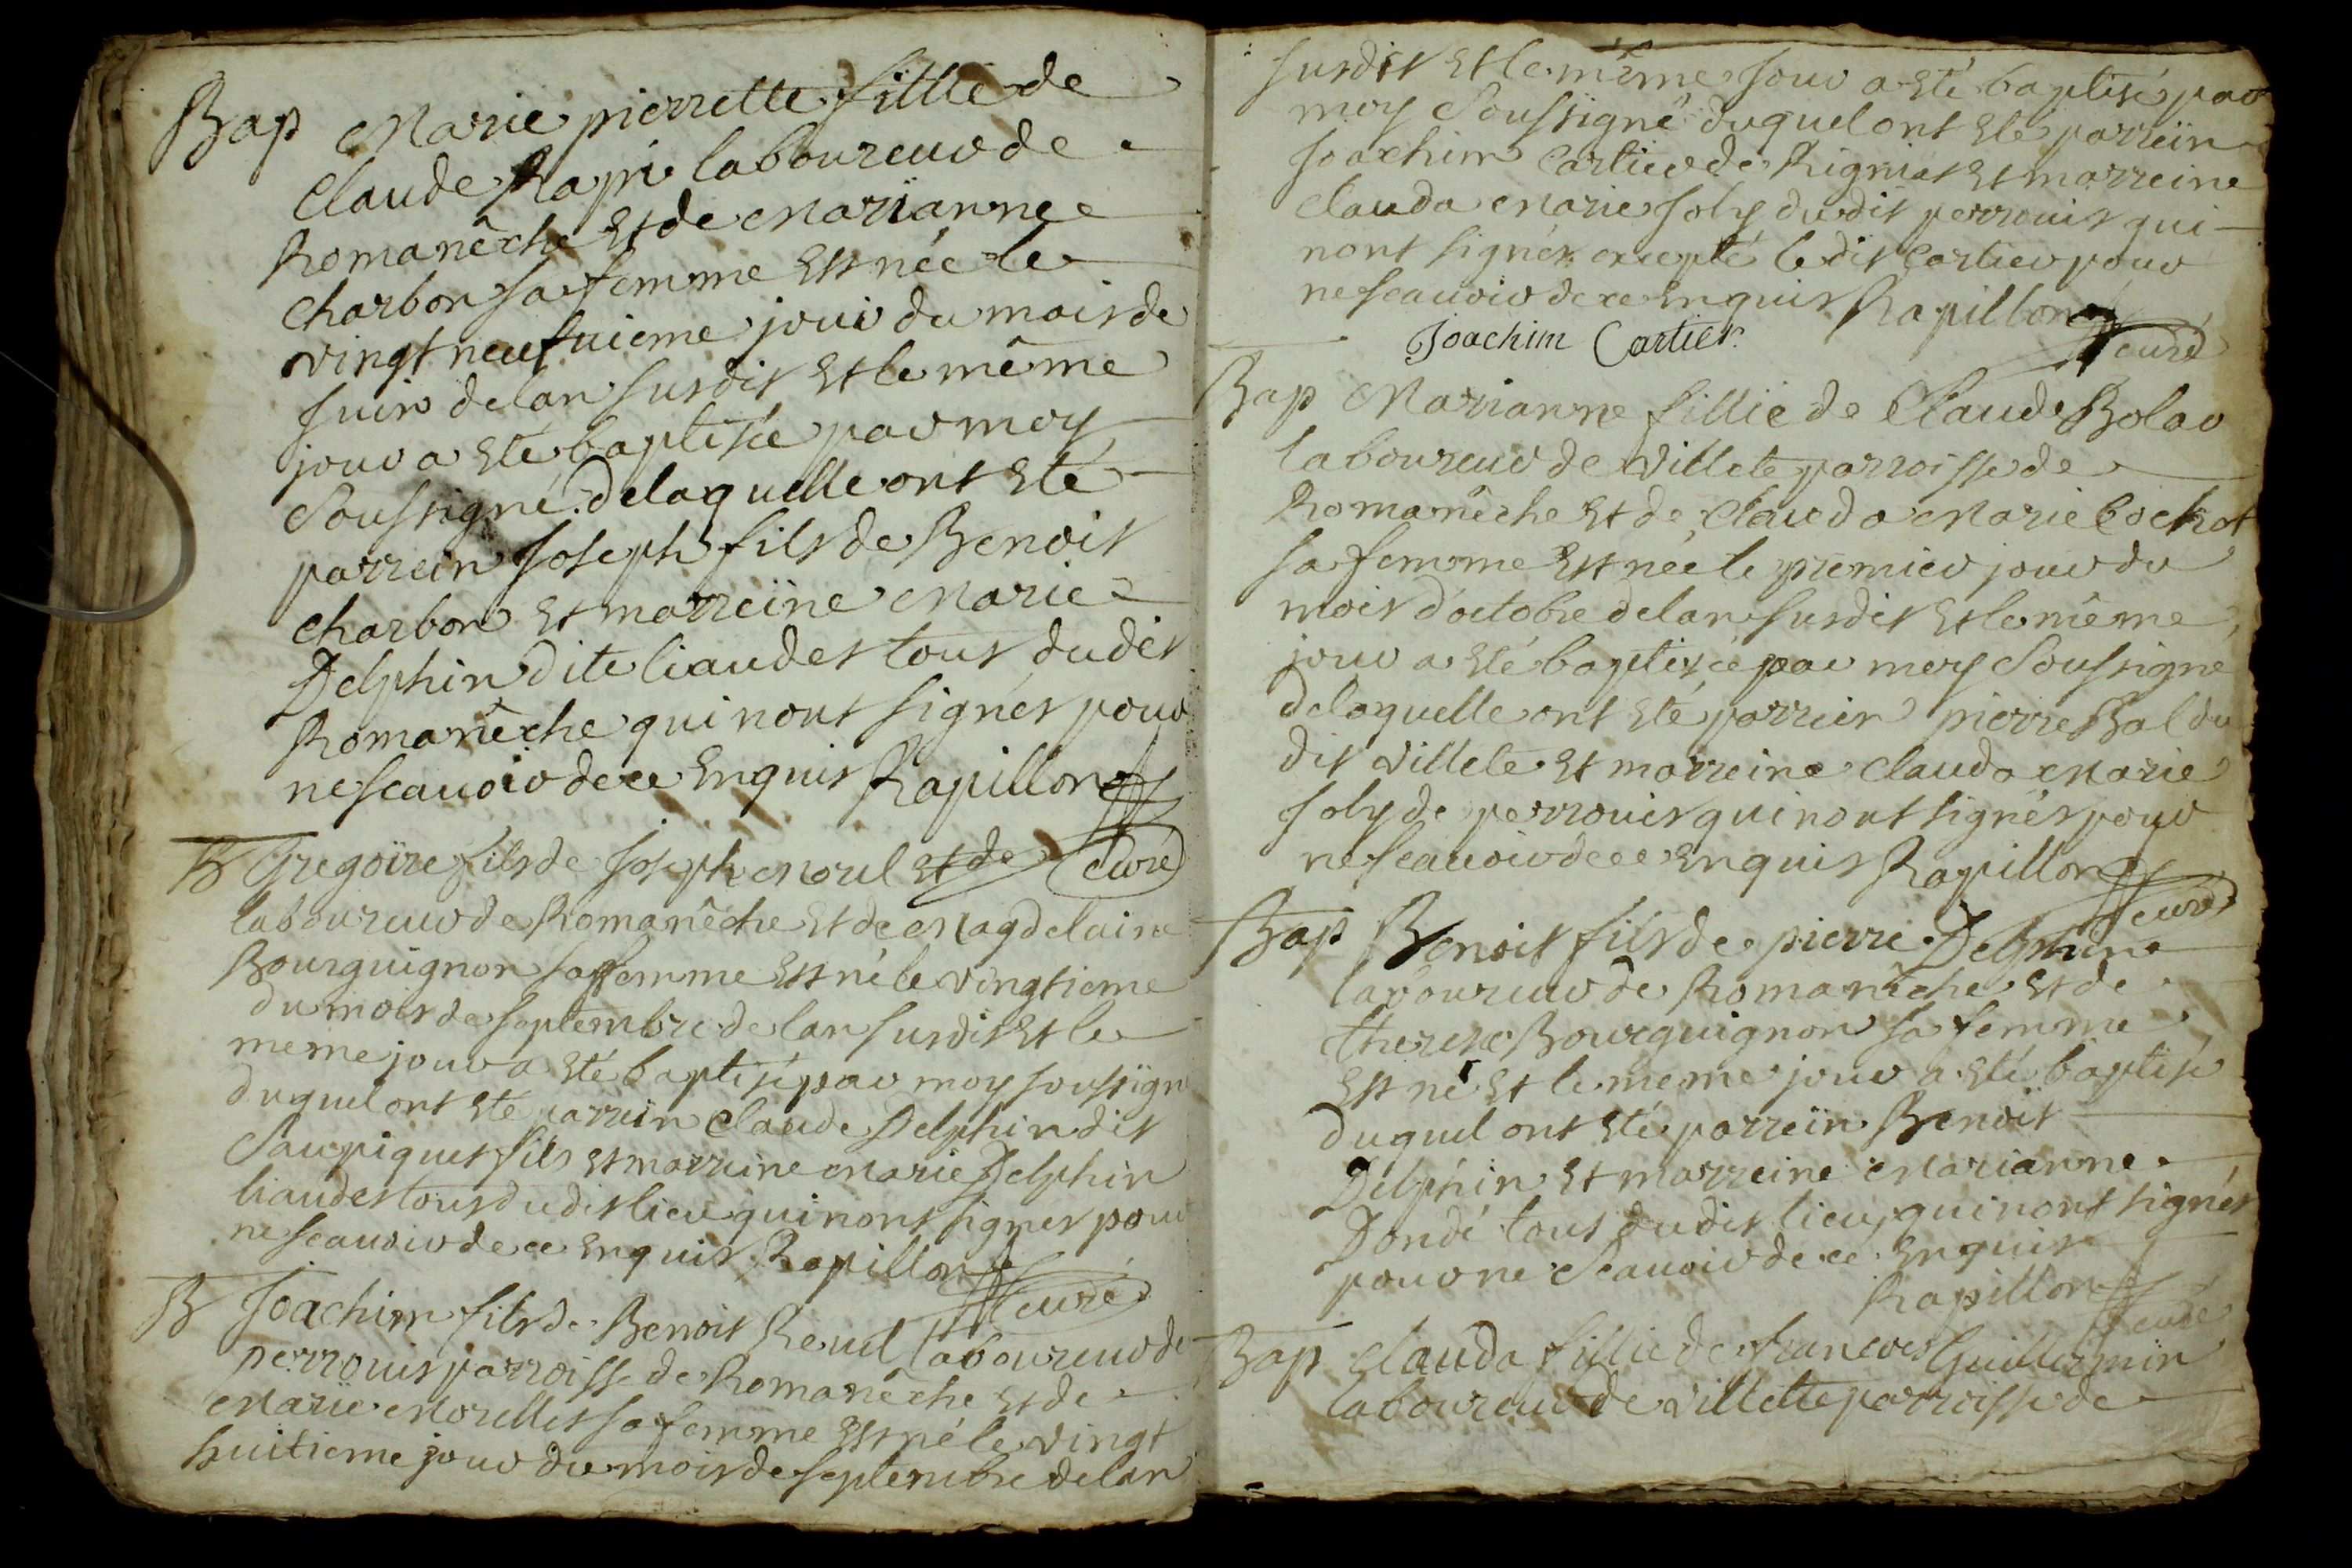 Bap Marie pierrette fillie de
Claude Rapi laboureur de
Romanêche et de Marianne
Charbon sa femme est née le
vingt neufvieme jour du mois de
Juin de lan susdit et le même
jour a eté baptisée par moy
Soussigné. de laquelle ont eté
parrein Joseph fils de Benoit
Charbon et marreine Marie
Delphin dite liaudet tous dudit
Romanêche qui nont signés pour
ne scauoir de ce enquis Rapillon
curé
B Gregoire fils de Joseph Morel et de
laboureur de Romanêche et de Magdelaine
Bourguignon sa femme est né le vingtieme
du mois de septembre de lan susdit et le
meme jour a eté baptisé par moy soussign
duquel ont eté parrein Claude Delphin dit
Saupiquet fils et marreine Marie Delphin
liaudet tous dudit lieu qui nont signes pour
ne scauoir de ce enquis Rapillon
curé
B Joachim fils de Benoit Revel laboureur de
perrouis parroisse de Romanêche et de
Marie Morellet sa femme est né le vingt
huitieme jour du mois de septembre de lan
susdit et le même jour a eté baptisé par
moy Soussigné duquel ont eté parrein
Joachim Cartier de Rigniat et marreine
Clauda Marie Joly du dit perrouis qui
nont signés excepté ledit Cartier pour
ne scauoir de ce enquis Rapillon
Joachim Cartier. curé
Bap Marianne fillie de Claude Bolar
laboureur de Villete parroisse de
Romanêche et de Clauda Marie Cochet
sa femme est née le premier jour du
mois d'octobre de lan susdit et le même
jour a eté baptisée par moy Soussigné
de laquelle ont eté parrein pierre Bal du
dit Villete et marreine Clauda Marie
Joly de perrouis qui nont signés pour
ne scauoir de ce enquis Rapillon
curé
Bap Benoit fils de pierre Delphin
laboureur de Romanêche et de
therese Bourguignon sa femme
est né et le meme jour a eté baptisé
duquel ont eté parrein Benoit
Delphin et marreine Marianne
Dondé tous dudit lieu, qui nont signés
pour ne Scauoir de ce enquis
Rapillon
curé
Bap Clauda fillie de francois Guillermin
laboureur de Villette parroisse de